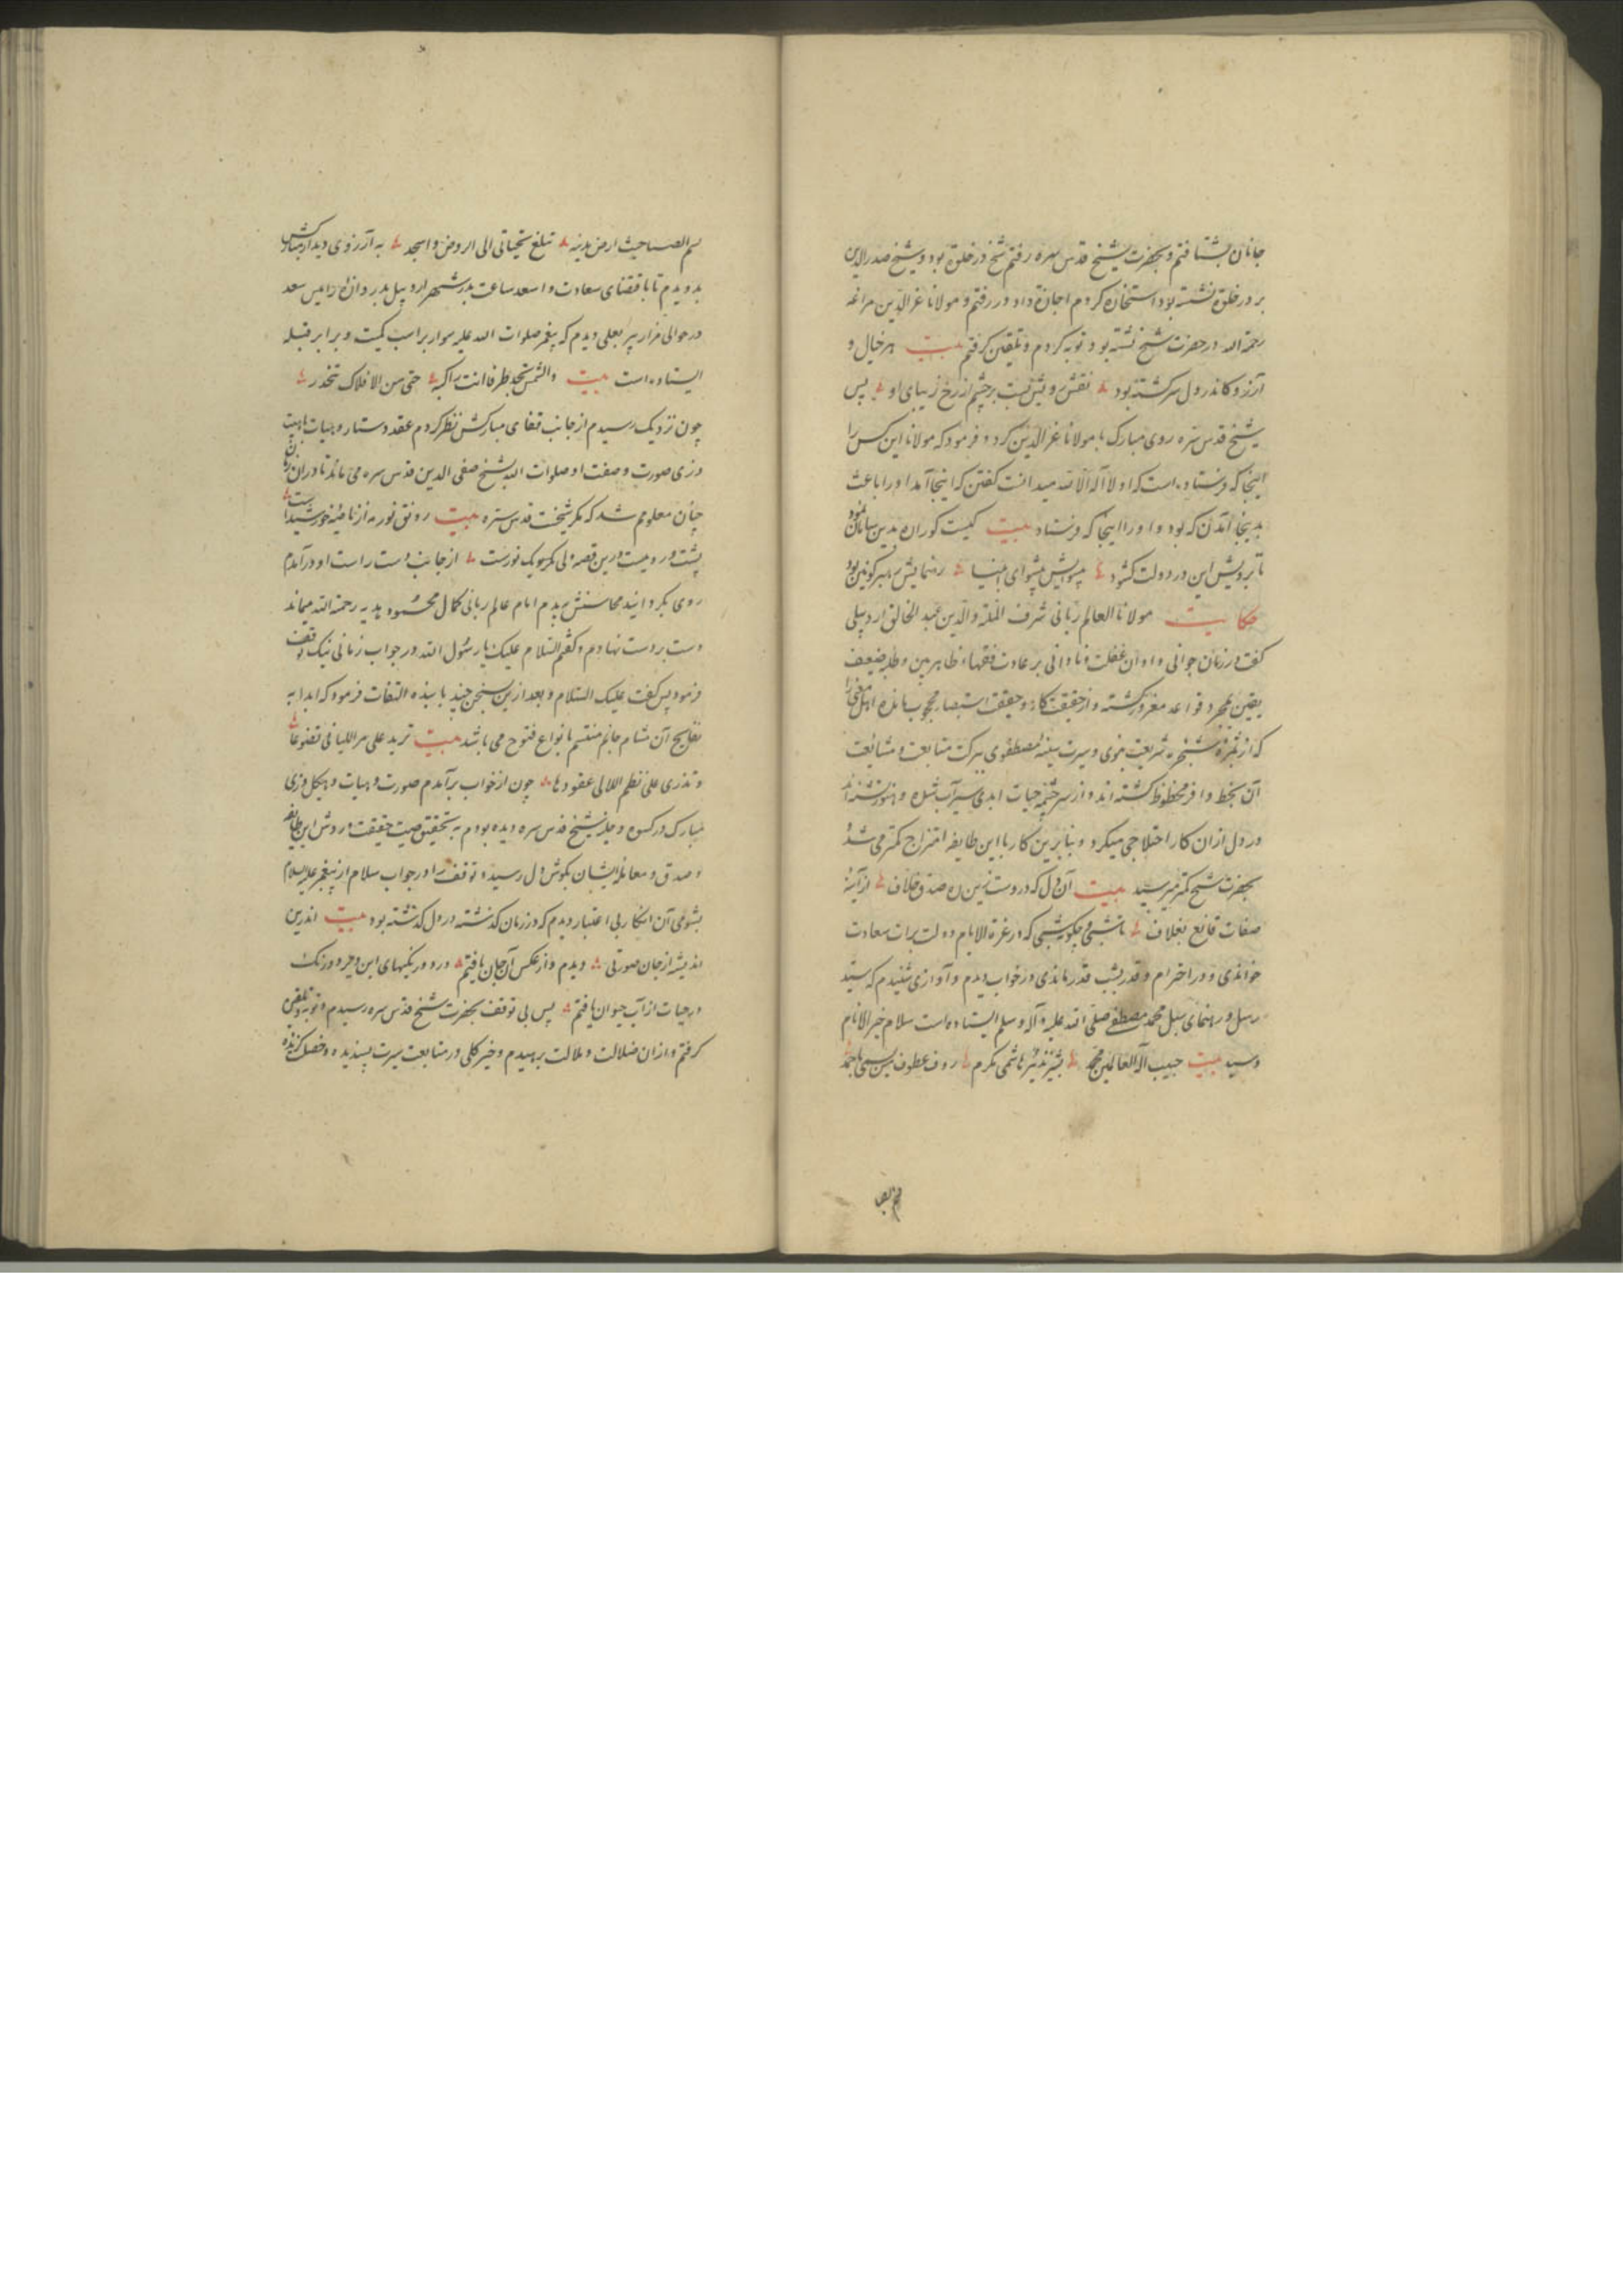 جانان بشتافتم و بحضرت شیخ قدس سره رفتم شیخ در خلوة بود و شیخ صدرالدین
بر در خلوة نشسته بود استخازه کردم اجازة داد در رفتم و مولانا عزالدین مراغه
رحمة الله در حضرت شیخ نشسته بود توبه کردم و تلقین گرفتم بیت هر خیال و
آرزو کاندر دل سرکشته بود نقش رویش بست بر چشم از رخ زیبای او پس
شیخ قدس سره روی مبارک با مولانا عزالدین کرد و فرمود که مولانا این کس را
اینجا که فرستاده است که او لا اله الا الله میدانست کفتن که اینجا آمد او را باعث
بدینجا آمدن که بود و او را اینجا که فرستاد بیت کیست کو راه بدین سامان نمود
تا برویش این در دولت کشود پیشوایش پیشوای انبیا رهنمایش رهبر کونین بود
حکایت مولانا العالم ربانی شرف الملة والدین عبد الخالق اردبیلی
کفت در زمان جوانی و اوان غفلت و نادانی بر عادت فقهاء ظاهربین و طلبه ضعیف
یقین بمجرد قواعد مغرور کشته و از حقیقت کار و حقیقت استبصار محجوب مانده اهل معنی را
که از ثمره شجره شریعت نبوی و سیرت سنیه مصطفوی ببرکت متابعت و مشایعت
آن بحظ وافر محظوظ کشته اند و از سرچشمه حیات ابدی سیرآب شده و هنوز تشنه اند
در دل ازان کار اختلاجی میکرد و بنابرین کار با این طایفه امتزاج کمتر می شد و
بحضرت شیخ کمتر میرسید بیت آن دل که در دوست زین ره صدق خلاف از آینه
صفات قانع بغلاف تا شبی و چکویم شبی که در غرة الایام دولت برات سعادت
خواندی و در احترام و قدر بشب قدر ماندی در خواب دیدم و آوازی شنیدم که سید
رسل و رهنمای سبل محمد مصطفی صلی الله علیه و آله وسلم ایستاده است سلام خیر الانام
وسید بیت حبیب اله العالمین محمد بشیر نذیر هاشمی مکرم رؤف عطوف من یسمی باحمد
نسیم الصبا حیث ارض مدینه تبلغ تحیاتی الی الروض و اسجد به آرزوی دیدار مبارکش
بدویدم تا باقتضای سعادت و اسعد ساعت بدر شهر اردبیل بدروازه رئیس سعد
در حوالی مزار پیر بعلی دیدم که پیغمبر صلوات الله علیه سوار بر اسب کمیت و برابر قبله
ایستاده است بیت والشمس تجد طرفا انت راکبه حتی من الافلاک تنحدر
چون نزدیک رسیدم از جانب قفای مبارکش نظر کردم عقد دستار و هیات با هیبت
و زی صورت و صفت او صلوات الله بشیخ صفی الدین قدس سره می ماند تا دران زمان
چنان معلومم شد که مکر شیخست قدس سره بیت رونق نور مه از ناصیه خورشید است
پشت و رویست درین قصه ولی کر یک نورست از جانب دست راست او درآمدم
روی بکردانید محاسنش دیدم امام عالم ربانی کمال محمود بدیه رحمة الله میماند
دست بر دست نهادم و کفتم السلام علیک یا رسول الله در جواب زمانی نیک توقف
فرمود پس کفت علیک السلام و بعد ازین سخن چند با بنده التفات فرمود که ابدا به
نفایح آن مشام جانم منقسم بانواع فتوح می باشد بیت تزید علی مر اللیالی تضوعا
و تذری علی نظم اللالی عقودها چون از خواب برآمدم صورت و هیات و هیکل و زی
مبارک در کسوه و حلیه شیخ قدس سره دیده بودم به تحقیق صیت حقیقت و روش این طایفه
و صدق و معامله ایشان بکوش دل رسید و توقف را در جواب سلام از پیغمبر علیه السلام
بشومی آن انکار بی اعتبار دیدم که در زمان کذشته در دل کذشته بود بیت اندرین
اندیشه از جان صورتی دیدم و از عکس آن جان یافتم در دو رنکیهای این وجود و رنک
در حیات از آب حیوان یافتم پس بی توقف بحضرت شیخ قدس سره رسیدم و توبه و تلقین
کرفتم و ازان ضلالت و ملالت برهیدم و خیر کلی در متابعت سیرت پسندیده و خصال کزیده